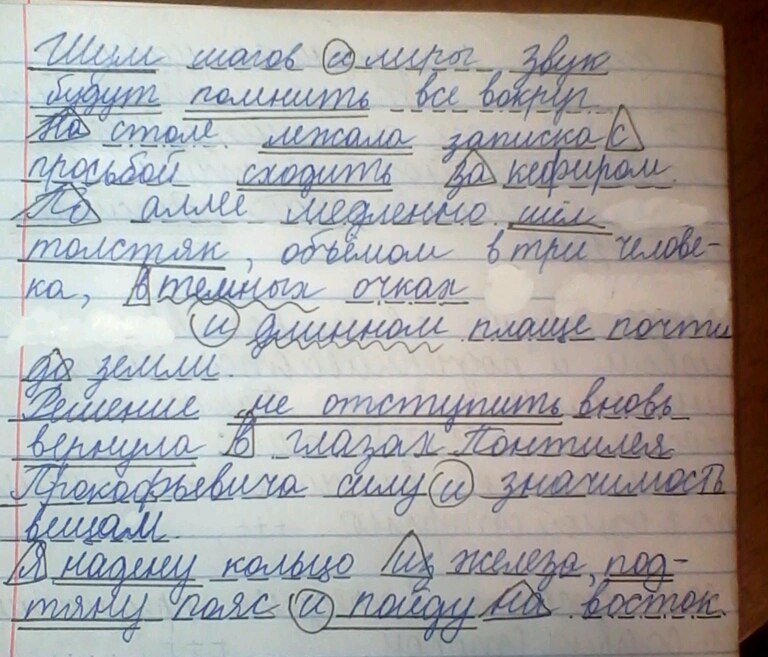 Шум шагов и лиры звук
будут помнить все вокруг.
На столе лежала записка с
просьбой сходить за кефиром.
По аллее медленно шёл
толстяк, объёмом в три челове-
ка, в темных очках
и длинном плаще почти
до земли.
Решение не отступить вновь
вернула в глазах Понтилея
Прокофьевича силу и значимость
вещам.
Я надену кольцо из железа, под-
тяну пояс и пойду на восток.